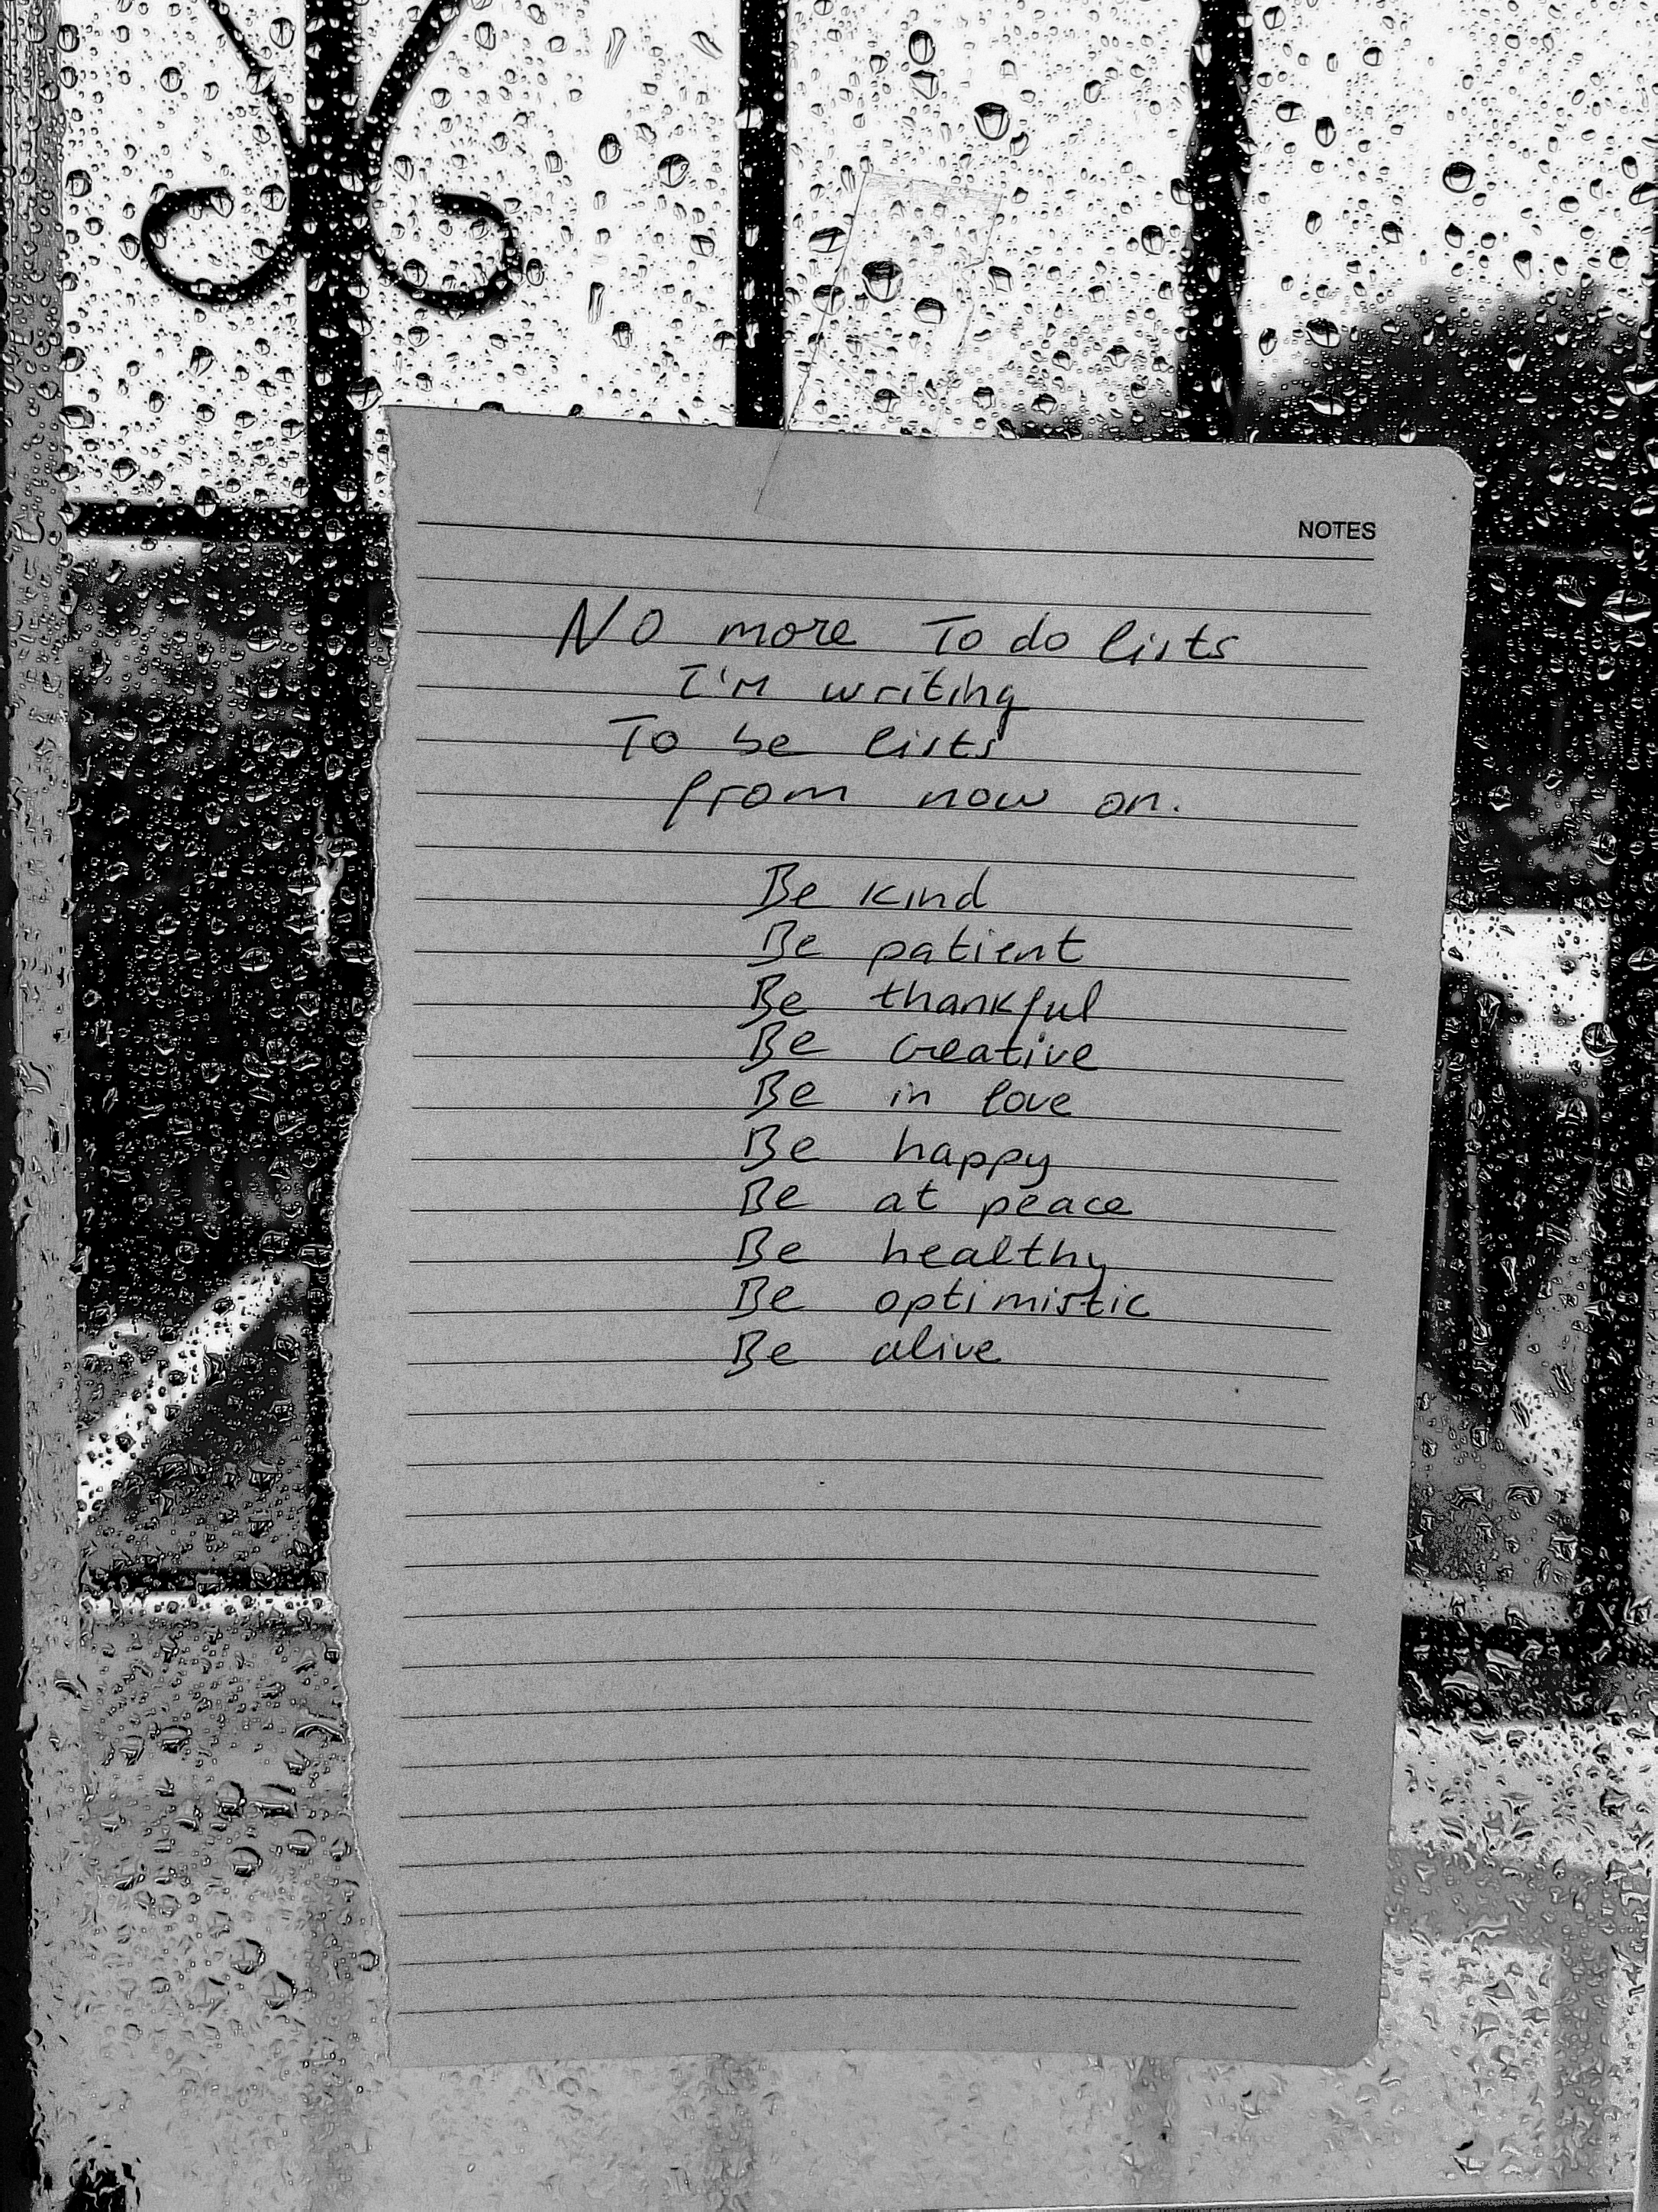 NOTES
NO more To do lists
I'm writing
To be lists
from now on.
Be kind
Be patient
Be thankful
Be creative
Be in love
Be happy
Be at peace
Be healthy
Be optimistic
Be alive